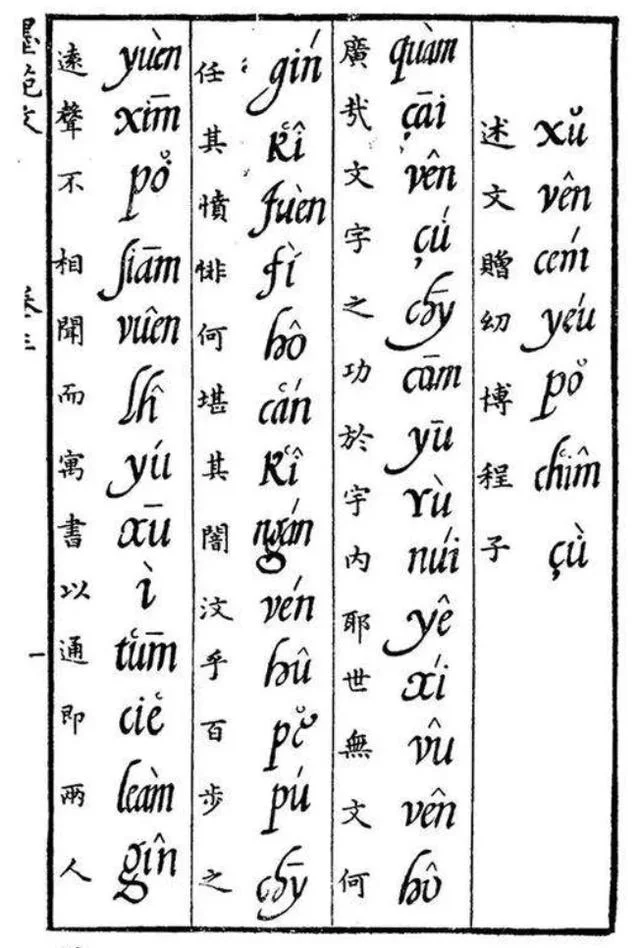 述文贈幼博程子
xŭ vên ceḿ yeú pŏ̇ chîm̔ çù̇
廣哉文字之功於宇內耶世無文何
quàm çāi vên çú chȳ cūm yū yù núi yê xí vû vên hô
任其憤悱何堪其闇汶乎百步之
gín kî̔ fuèn fì hô cán̔ kî̔ ngán vén hû pĕ pú chȳ
遠聲不相聞而寓書以通即兩人
yuèn xīm pŏ̇ siām vuên lĥ yú xū ì tūm̔ ciĕ leàm gîn
卷三
一